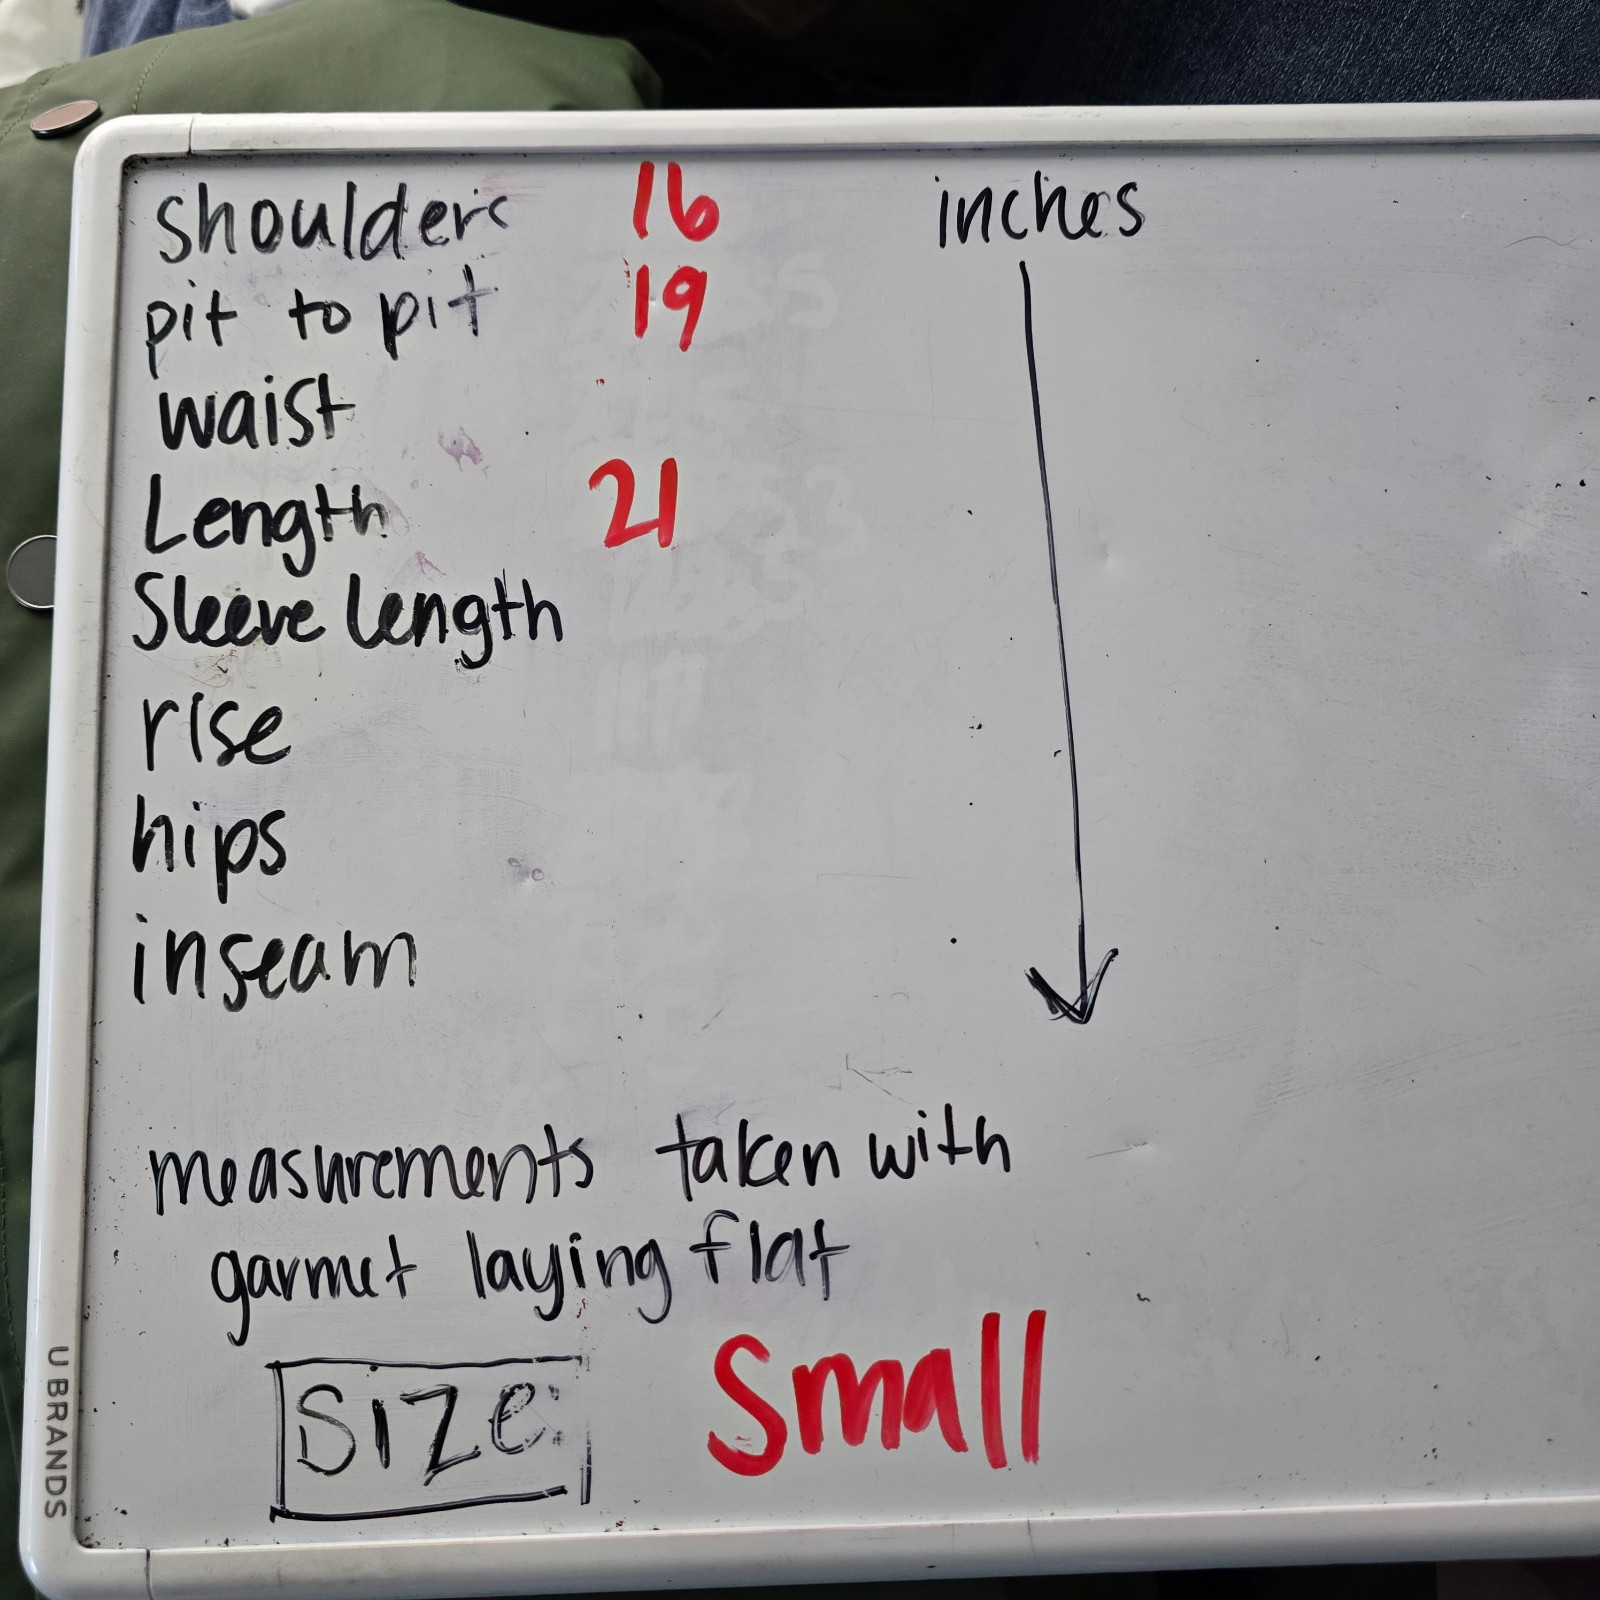 shoulders 16 inches
pit to pit 19
waist
Length 21
Sleeve length
rise
hips
inseam
measurements taken with
garmet laying flat
SIZe: Small
U BRANDS